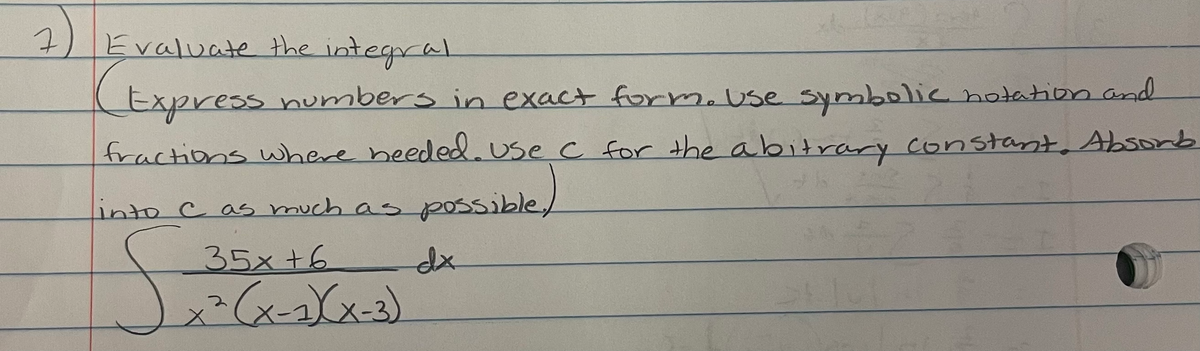 7) Evaluate the integral
(Express numbers in exact form. Use symbolic notation and
fractions where needed. Use C for the abitrary constant. Absorb
into C as much as possible.)
∫ 35x+6 / x²(x-1)(x-3) dx